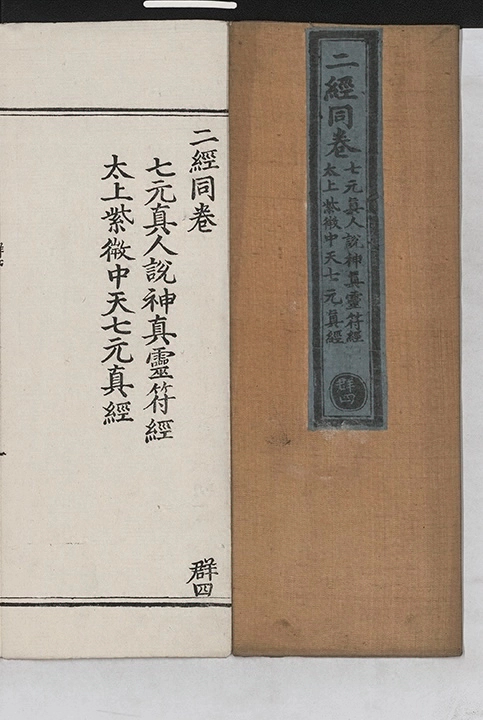 二經同卷
七元真人說神真靈符經
太上紫微中天七元真經
群四
二經同卷
七元真人說神真靈符經
太上紫微中天七元真經
群四